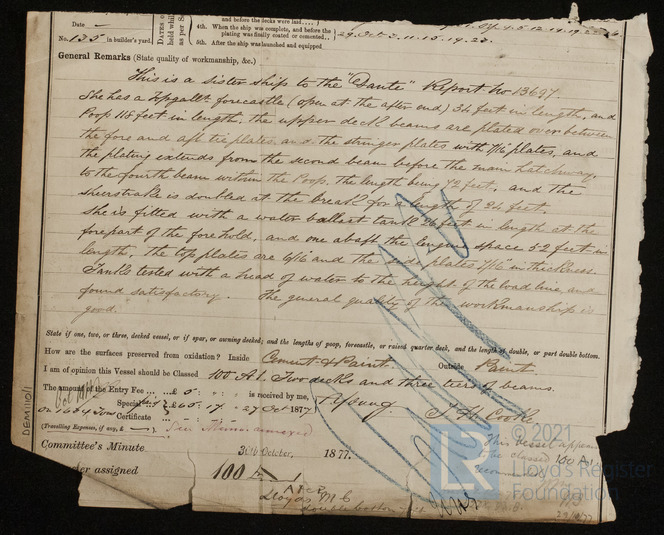 Date —
No. 135 in builder's yard.
and before the decks were laid....
4th. When the ship was complete, and before the
plating was finally coated or cemented..
5th. After the ship was launched and equipped
29. Oct 3. 11. 15. 19. 23.
General Remarks (State quality of workmanship, &c.)
This is a sister ship to the "Dante" Report No 13697.
She has a Topgallt forecastle (open at the after end) 34 feet in length, and
Poop 118 feet in length. the upper deck beams are plated over between
the fore and aft tie plates, and the stringer plates with 7/16 plates, and
the plating extends from the second beam before the main hatchway,
to the fourth beam within the Poop. the length being 72 feet. and the
Sheerstrake is doubled at the break for a length of 24 feet.
She is fitted with a water ballast tank 26 feet in length at the
forepart of the forehold, and one abaft the engine space 52 feet in
length, the top plates are 6/16 and the side plates 7/16" in thickness.
Tanks tested with a head of water to the height of the load line, and
found satisfactory. The general quality of the workmanship is
good.
State if one, two, or three, decked vessel, or if spar, or awning decked; and the lengths of poop, forecastle, or raised quarter deck, and the length of double, or part double bottom.
How are the surfaces preserved from oxidation? Inside Cement & Paint. Outside Paint
I am of opinion this Vessel should be Classed 100 A1. Two decks and three tiers of beams.
The amount of the Entry Fee ... £ 5 : is received by me,
Special ... £ 65 : 17 . 27 Oct 1877 T Young. T. H. Cooke
Certificate
(Travelling Expenses, if any, £ )
Committee's Minute 30th October, 1877.
assigned 100 A
Lloyds M C
DEM/110/1
This vessel appears
to be classed 100 A1
© 2021
LR
Lloyd's Register
Foundation